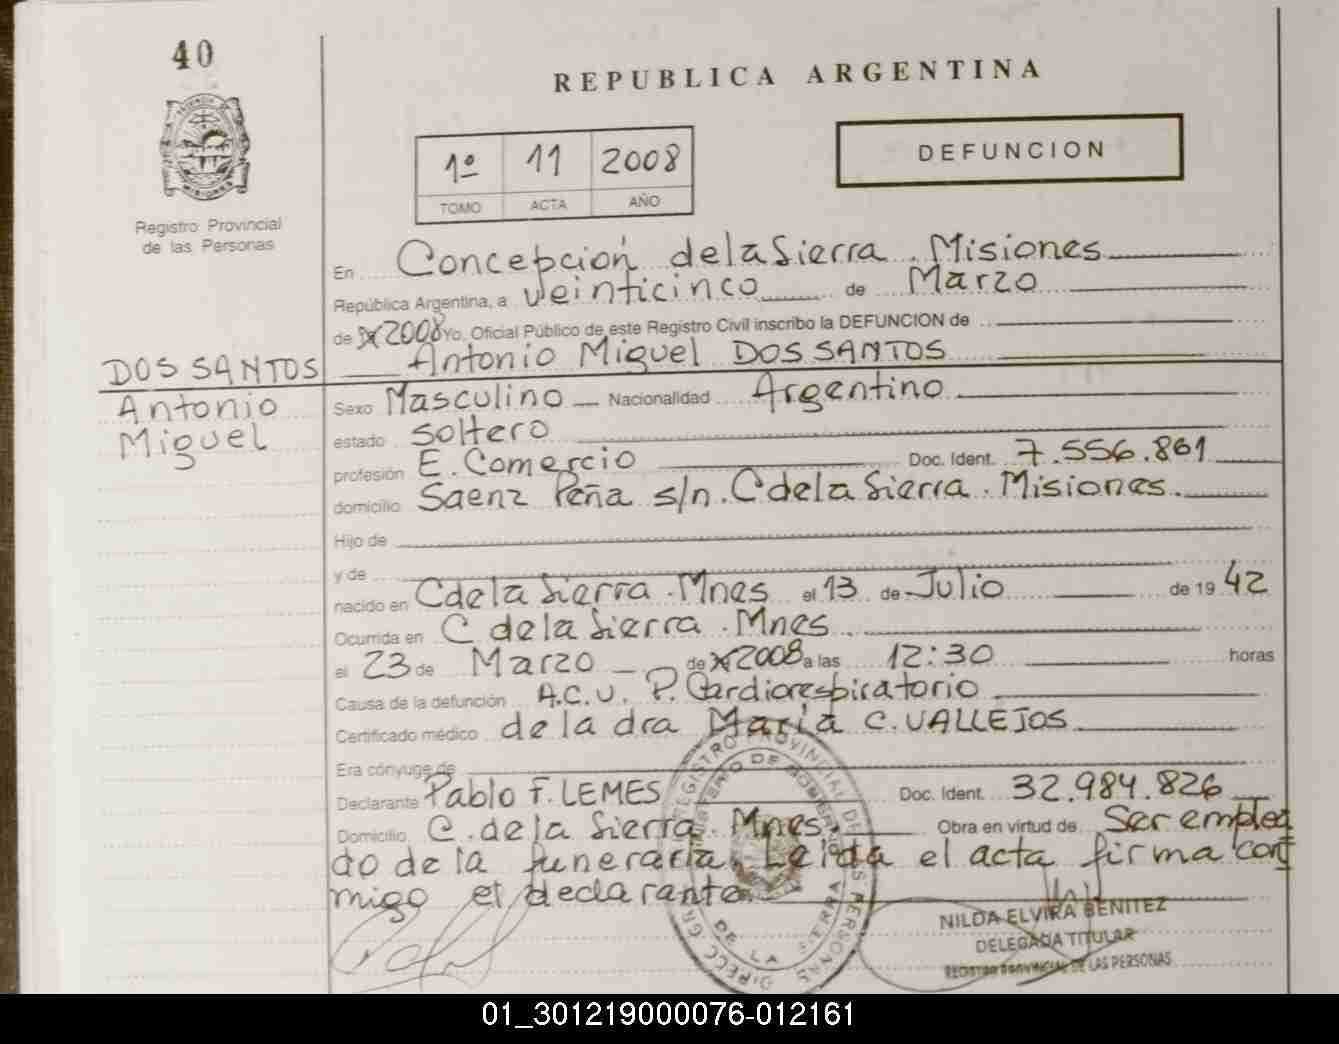 40
REPUBLICA ARGENTINA
DEFUNCION
1º 11 2008
TOMO ACTA AÑO
Registro Provincial
de las Personas
En Concepción de la Sierra. Misiones
República Argentina, a veinticinco de Marzo
de 2008 Yo, Oficial Público de este Registro Civil inscribo la DEFUNCION de
DOS SANTOS Antonio Miguel DOS SANTOS
Antonio
Miguel
Sexo Masculino Nacionalidad Argentino
estado Soltero
profesión E. Comercio Doc. Ident. 7.556.861
domicilio Saenz Peña s/n. C de la Sierra. Misiones.
Hijo de
y de
nacido en C de la Sierra. Mnes el 13 de Julio de 19 42
Ocurrida en C de la Sierra. Mnes
el 23 de Marzo de 2008 a las 12:30 horas
Causa de la defunción A.C.V. P. Cardiorespiratorio
Certificado médico de la dra María C. VALLEJOS
Era cónyuge de
Declarante Pablo F. LEMES Doc. Ident. 32.984.826
Domicilio C. de la Sierra. Mnes. Obra en virtud de Ser emplea
do de la funeraria. Leida el acta firma con
migo el declarante.
REGISTRO PROVINCIAL DE LAS PERSONAS
MINISTERIO DE GOBIERNO
DE LA SIERRA
NILDA ELVIRA BENITEZ
DELEGADA TITULAR
REGISTRO PROVINCIAL DE LAS PERSONAS
01_301219000076-012161